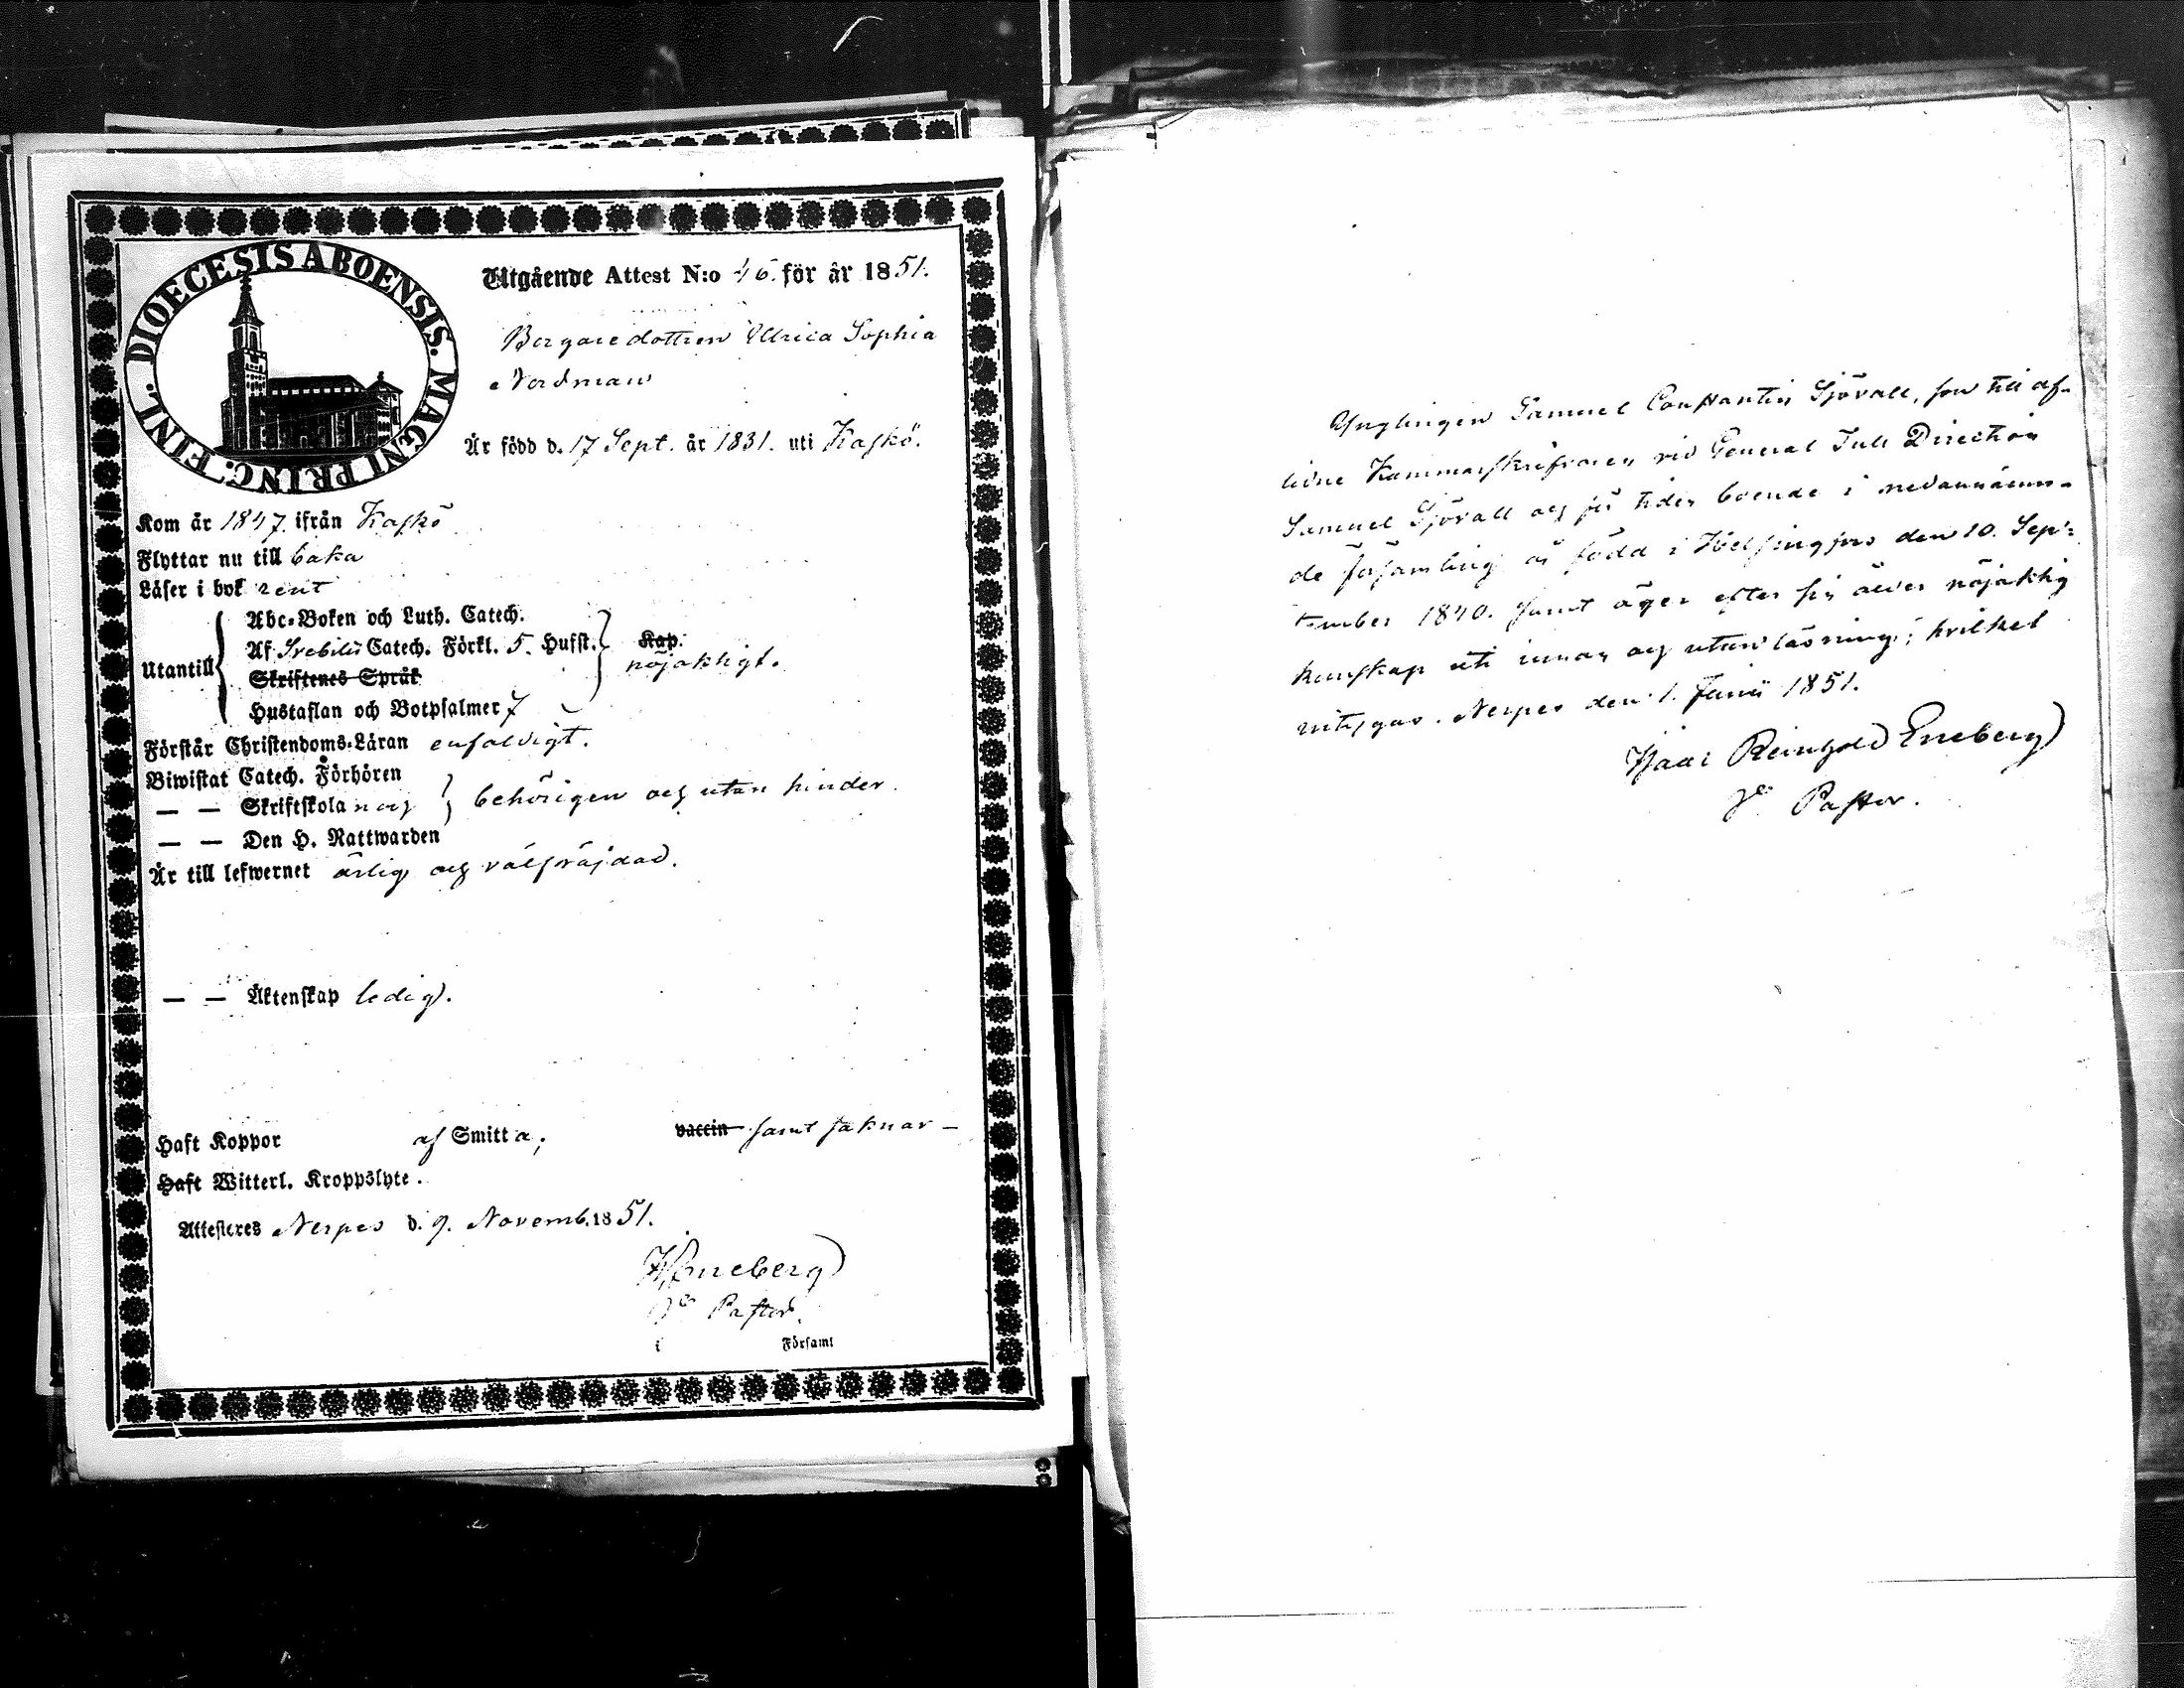 DIOECESIS ABOENSIS. MAGNI PRINC: FINL.
Utgående Attest N:o 46. för år 1851.
Borgaredottren Ulrica Sophia
Nordman
Är född d. 17 Sept. år 1831. uti Kaskö.
Kom år 1847. ifrån Kaskö
Flyttar nu till baka
Läser i bok rent
Utantill
Abc-Boken och Luth. Catech.
Af Svebilii Catech. Förkl. 5. Hufst. Kap.
nöjaktigt.
Skriftenes Språk
Hustaflan och Botpsalmer 7
Förstår Christendoms-Läran enfaldigt.
Biwistat Catech. Förhören
— — Skriftskola behörigen och utan hinder.
— — Den H. Nattwarden
Är till lefwernet ärlig och välfräjdad.
— — Äktenskap ledig.
Haft Koppor af Smitta; vaccin samt saknar —
Haft Witterl. Kroppslyte.
Attesteres Nerpes d. 9. Novemb. 1851.
Eneberg
Pastor.
i Församl
Ynglingen Samuel Constantin Sjövall, son till af-
lidne Kammarskrifvaren vid General Tull Direction
Samuel Sjövall och för tiden boende i nedannämn-
de församling är född i Helsingfors den 10. Sep-
tember 1840. samt äger efter sin ålder nöjaktig
kunskap uti innan och utanläsning; hvilket
vitsjgas. Nerpes den 1. Junii 1851.
Isaac Reinhold Eneberg
Pastor.